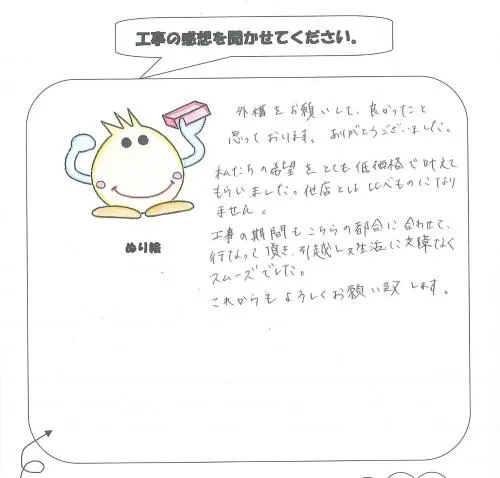 工事の感想を聞かせてください。
外構をお願いして、良かったと
思っております。ありがとうございました。
私たちの希望をとても低価格で叶えて
もらいました。他店とは比べものになり
ません。
工事の期間もこちらの都合に合わせて、
行なって頂き、引越し、生活に支障なく
スムーズでした。
これからもよろしくお願い致します。
ぬり絵